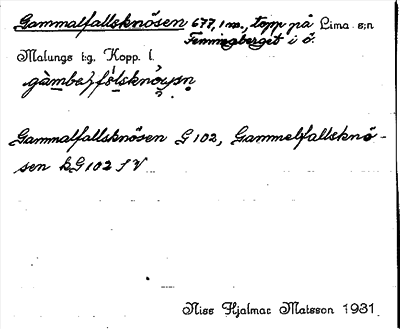 Gammalfallsknösen 677,1 m., topp på Lima s:n
Fenningberget i ö.
Malungs t:g. Kopp. l.
Gammalfallsknösen G 102, Gammelfallsknö-
sen b G 102 S V
Niss Hjalmar Matsson 1931